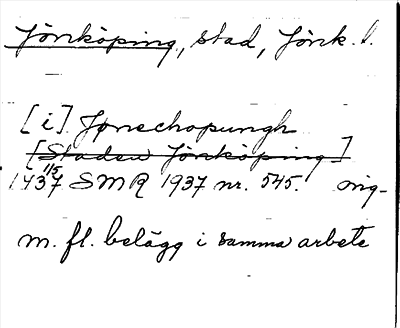 Jönköping, stad, Jönk. l.
[i] Jonschopungh
[Staden Jönköping]
1437 11/5 SMR 1937 nr. 545. orig-
m. fl. belägg i samma arbete